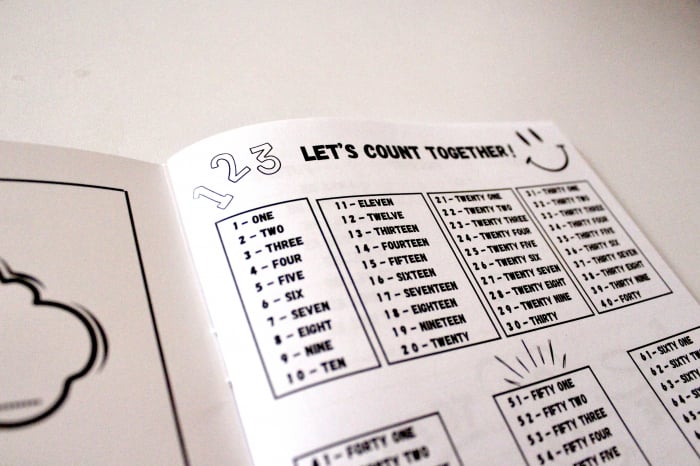 1 2 3
LET'S COUNT TOGETHER!
1 - ONE
2 - TWO
3 - THREE
4 - FOUR
5 - FIVE
6 - SIX
7 - SEVEN
8 - EIGHT
9 - NINE
10 - TEN
11 - ELEVEN
12 - TWELVE
13 - THIRTEEN
14 - FOURTEEN
15 - FIFTEEN
16 - SIXTEEN
17 - SEVENTEEN
18 - EIGHTEEN
19 - NINETEEN
20 - TWENTY
21 - TWENTY ONE
22 - TWENTY TWO
23 - TWENTY THREE
24 - TWENTY FOUR
25 - TWENTY FIVE
26 - TWENTY SIX
27 - TWENTY SEVEN
28 - TWENTY EIGHT
29 - TWENTY NINE
30 - THIRTY
31 - THIRTY ONE
32 - THIRTY TWO
33 - THIRTY THREE
34 - THIRTY FOUR
35 - THIRTY FIVE
36 - THIRTY SIX
37 - THIRTY SEVEN
38 - THIRTY EIGHT
39 - THIRTY NINE
40 - FORTY
41 - FORTY ONE
FORTY TWO
51 - FIFTY ONE
52 - FIFTY TWO
53 - FIFTY THREE
54 - FIFTY FOUR
FIFTY FIVE
61 - SIXTY ONE
62 - SIXTY TW
63 - SIXTY
64 - SIXT
65 -